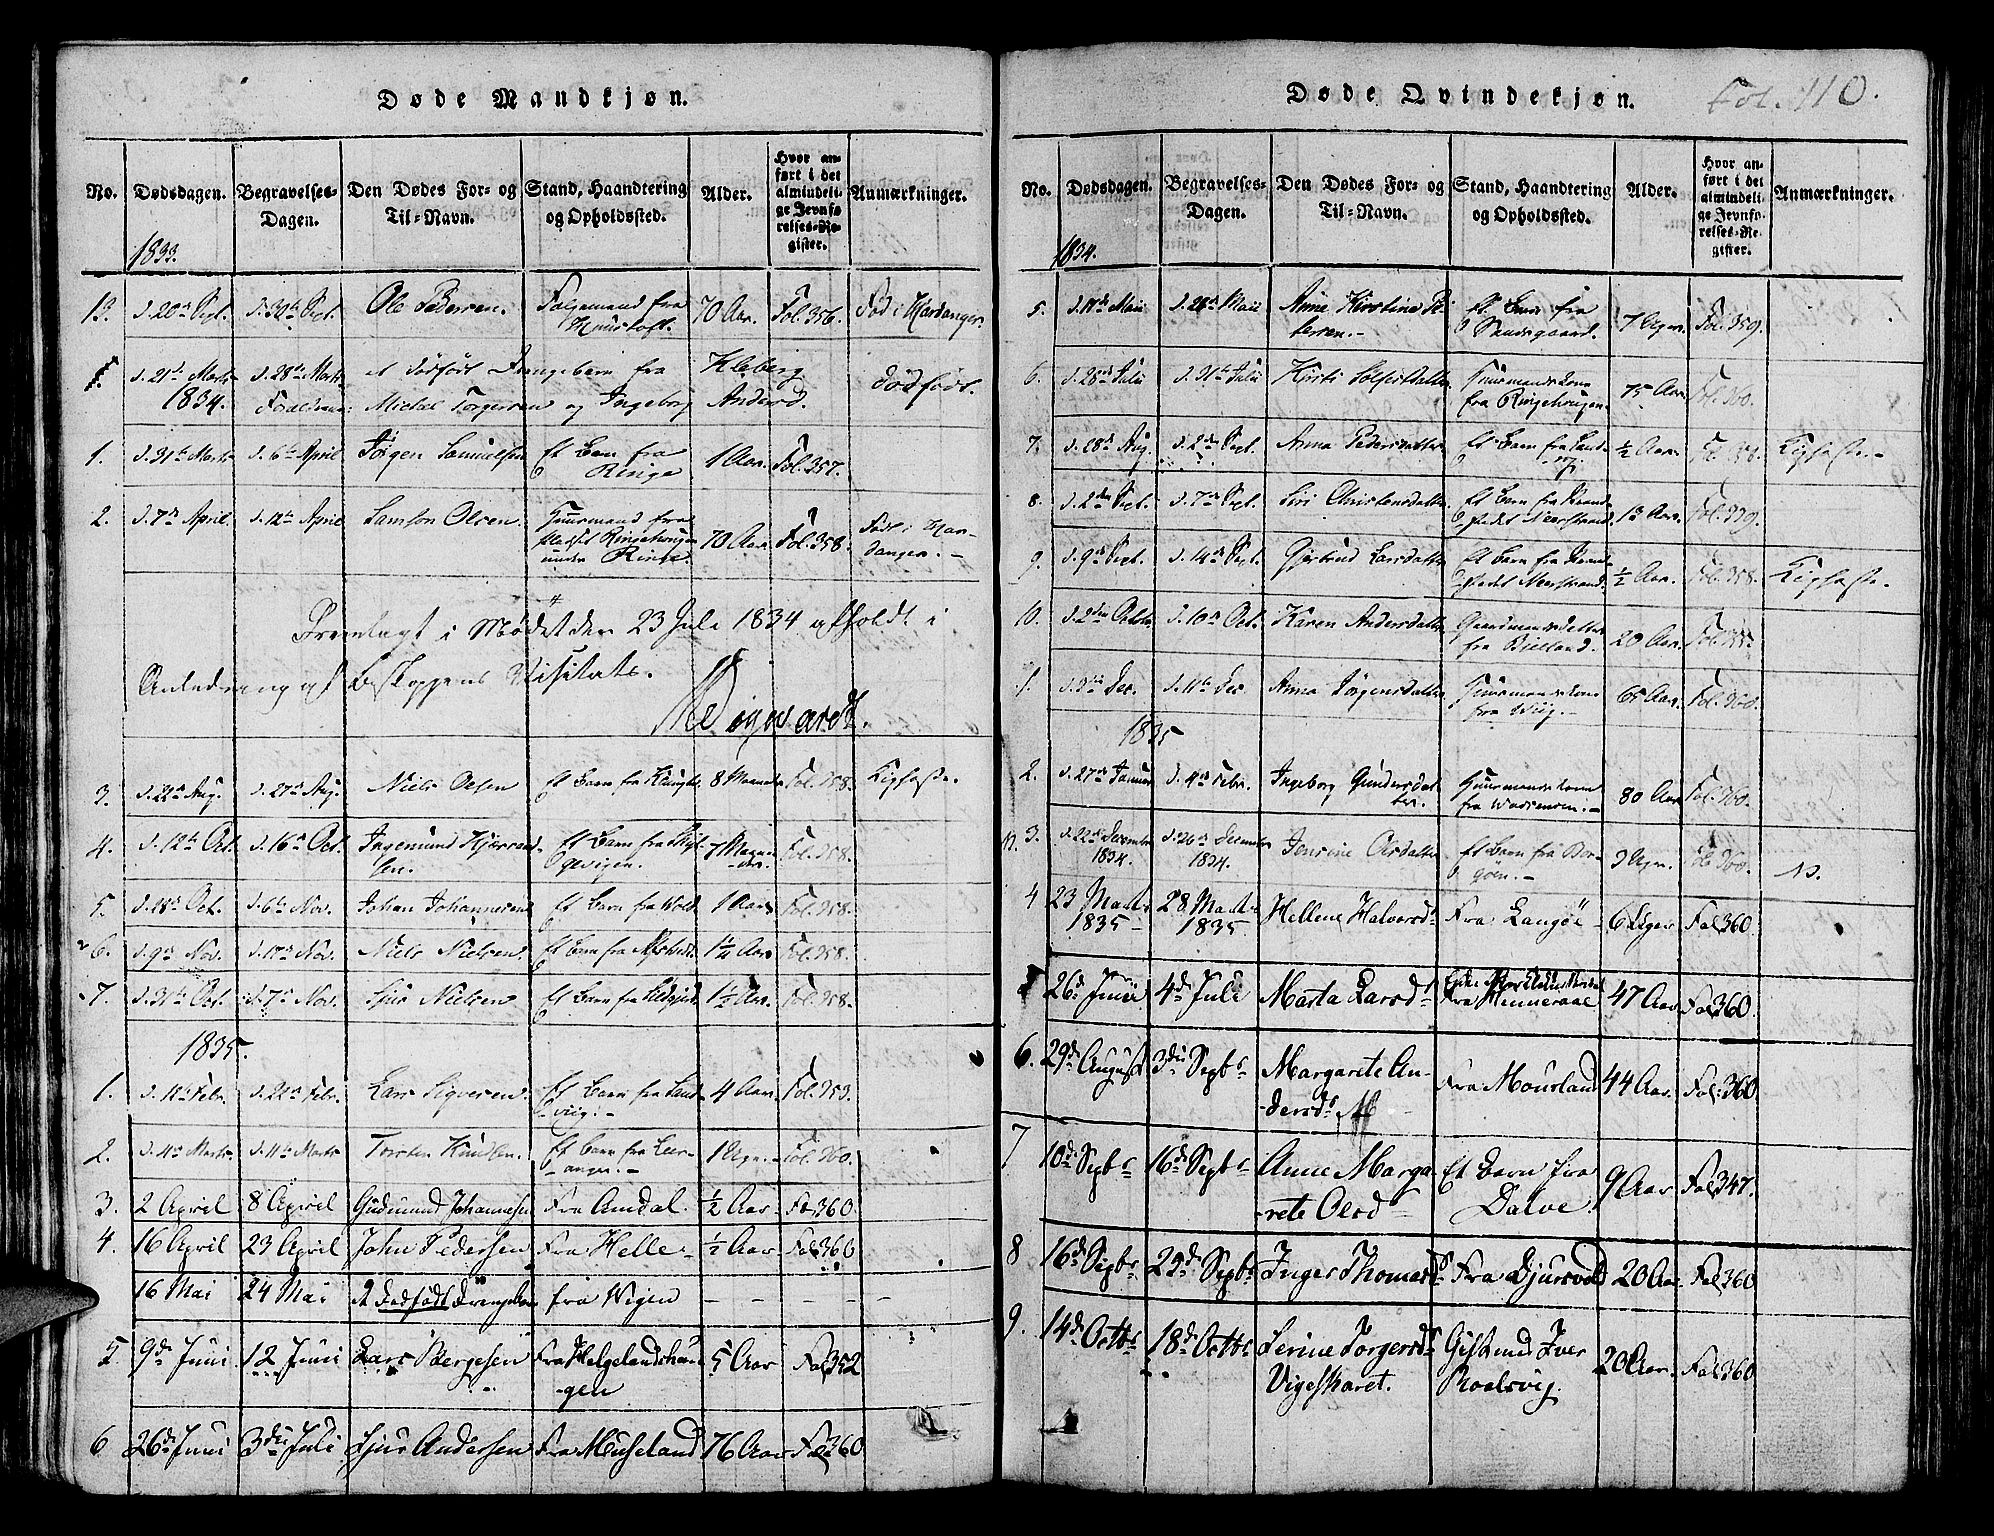 Døde Mandkjøn.
No. Dødsdagen. Begravelses-Dagen. Den Dødes For- og Til-Navn. Stand, Haandtering og Opholdssted. Alder. Hvor anført i det almindelige Jevnførelses-Register. Anmærkninger.
1833.
13. d. 20de Sept. d. 30te Sept. Ole Pedersen. Folgemand fra 70 Aar. Fol. 356. Fød i Hardanger.
d. 21de Marts 1834. d. 28de Marts et dødfødt Drengebarn fra Kleberg dødfødt.
Michel Torgersen og Ingeborg Andersd.
1. d. 31te Marts d. 6te April Jørgen Samuelsen Et Barn fra Ringe 1 Aar. Fol. 357.
2. d. 7de April d. 12te April Samson Olsen. Huusmand fra Pladset Ringehougen under Ringe. 70 Aar. Fol. 358. Født i Hardanger.
Fremlagt i Mødet den 23 Juli 1834 afholdt i
Anledning af Biskoppens Visitats.
3. d. 22de Aug. d. 27de Aug. Niels Olsen Et Barn fra 8 Maaneder Fol. 358. Ligfaste.
4. d. 12te Oct. d. 16de Oct. Ingemund Et Barn fra 7 Maaneder. Fol. 358.
5. d. 28de Oct. d. 6te Nov. Johan Johannesen Et Barn fra Wold 1 Aar Fol. 358.
6. d. 9de Nov. d. 17de Nov. Niels Nielsen Et Barn fra 1¼ Aar Fol. 358.
7. d. 31te Oct. d. 7de Nov. Sjur Nielsen Et Barn fra 1½ Aar. Fol. 358.
1835.
1. d. 11te Febr. d. 22de Febr. Lars Siqvesen Et Barn fra Sandvig. 4 Aar. Fol. 353.
2. d. 4de Marts. d. 11te Marts Torsten Knudsen Et Barn fra Leeranger. 1 Uge. Fol. 360.
3. 2 April 8 April Gudmund Johannesen Fra Amdal. ½ Aar Fol 360.
4. 16 April 23 April John Pedersen Fra Helle ½ Aar Fol 360
16 Mai 24 Mai et Dødfødt Drengebarn fra Vigen – – –
5. 9de Juni 12 Juni Lars Børgesen Fra Helgelandshaugen 5 Aar Fol 352
6 26de Juni 3die Juli Sjur Andersen Fra Museland 76 Aar Fol 360
Døde Qvindekjøn.
Fol. 110.
No. Dødsdagen. Begravelses-Dagen. Den Dødes For- og Til-Navn. Stand, Haandtering og Opholdssted. Alder. Hvor anført i det almindelige Jevnførelses-Register. Anmærkninger.
1834.
5. d. 17de Maii d. 26de Maii Anne Kirstine Petersen. Et Barn fra Sandsgaard. 7 Uger. Fol. 359.
6. d. 23de Julii d. 31te Julii Kirsti Huusmandskone fra Ringehougen. 75 Aar. Fol. 360.
7. d. 28de Aug. d. 2den Sept. Anna Pedersdatter Et Barn fra ½ Aar. Fol. 358. Ligfaste.
8. d. 2den Sept. d. 7de Sept. Siri Christensdatter Et Barn fra Strandstedet Neerstrand. 13 Aar. Fol. 339.
9. d. 9de Sept. d. 14de Sept. Gjertrud Larsdatter Et Barn fra Strandstedet Neerstrand. ½ Aar. Fol. 358. Ligfaste.
10. d. 2den Octob. d. 10de Oct. Karen Andersdatter Gaardmandsdatter fra Bielland. 20 Aar.
1. d. 3die Dec. d. 11te Dec. Anna Jørgensdatter Huusmandskone fra Wiig. 65 Aar. Fol. 360.
1835
2. d. 27de Januar d. 4de Febr. Ingeborg Gundersdatter. Huusmandskone fra 80 Aar Fol. 360.
3. d. 22de December 1834. d. 26de December 1834. Jensine Olsdatter Et Barn fra Borgøen. 3 Uger. Fol. 360.
4 23 Marts 1835 28 Marts 1835 Hellene Halvorsdr Fra Langøe 6 Uger Fol 360.
5 26de Juni 4de Juli Marta Larsdr Fra Hinneraae 47 Aar Fol 360.
6. 29de August 3die Septbr Margarete Andersdr Fra Mousland 44 Aar. Fol. 360.
7 10de Septbr 16de Septbr Anne Margarete Olsdr Et Barn fra Dalve. 9 Aar Fol 347.
8 16de Septbr 23de Septbr Inger Thomasdr Fra Djursvold 20 Aar Fol 360
9. 14de Octbr 18de Octbr Serine Torgersdr Vigeskaret. Gift med Iver Roalsvig. 20 Aar. Fol 360